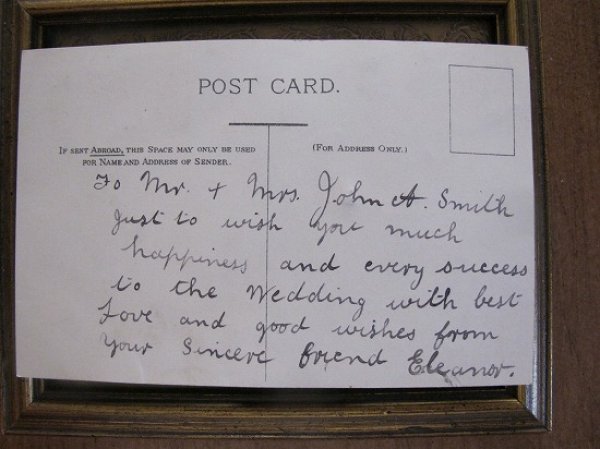 POST CARD.
IF SENT ABROAD, THIS SPACE MAY ONLY BE USED
FOR NAME AND ADDRESS OF SENDER.
(FOR ADDRESS ONLY.)
To Mr. + Mrs. John A. Smith
Just to wish you much
happiness and every success
to the Wedding with best
Love and good wishes from
Your Sincere friend Eleanor.